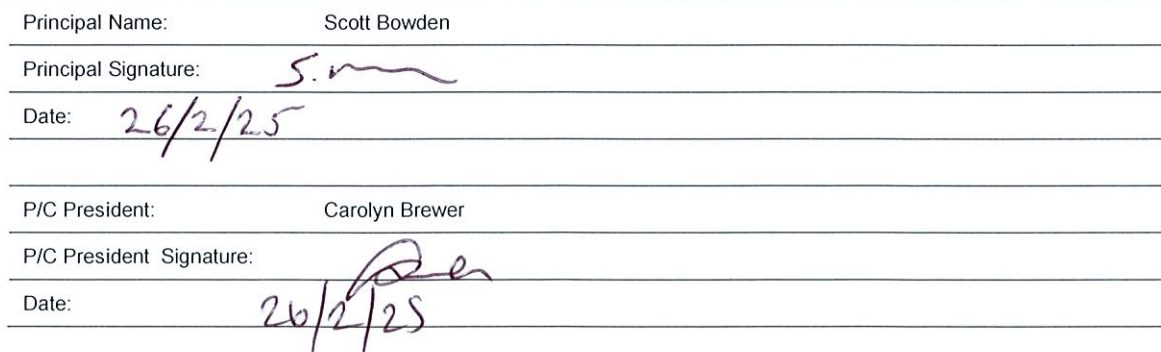 Principal Name: Scott Bowden
Principal Signature:
Date: 26/2/25
P/C President: Carolyn Brewer
P/C President Signature:
Date: 26/2/25